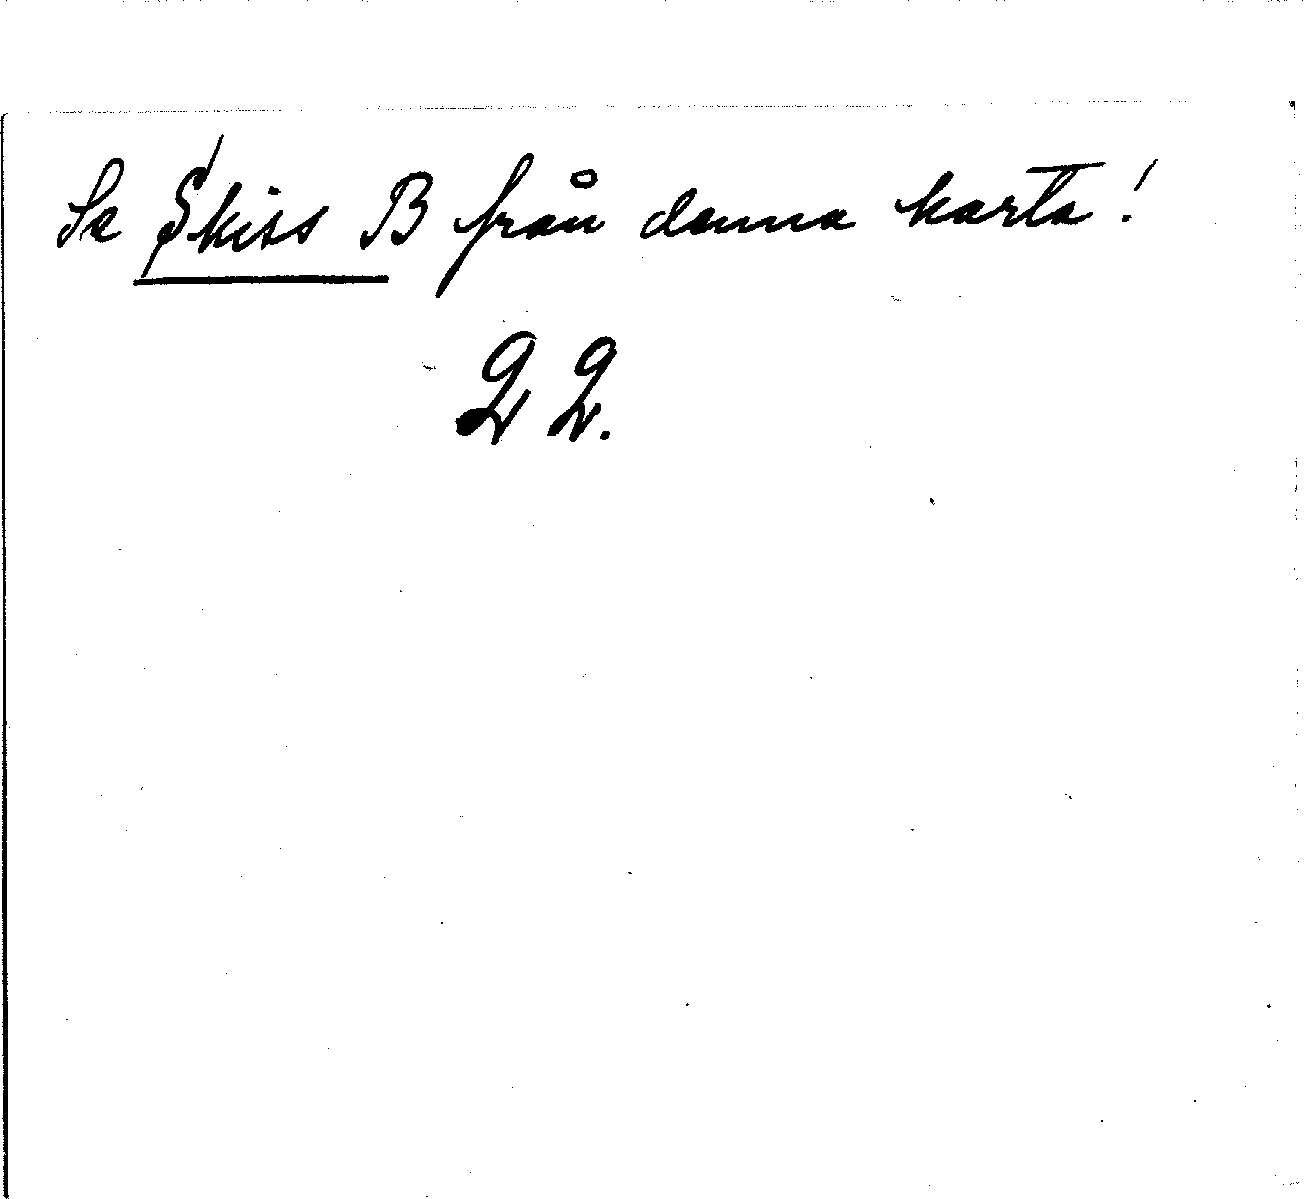 Se Skiss B från denna karta!
22.